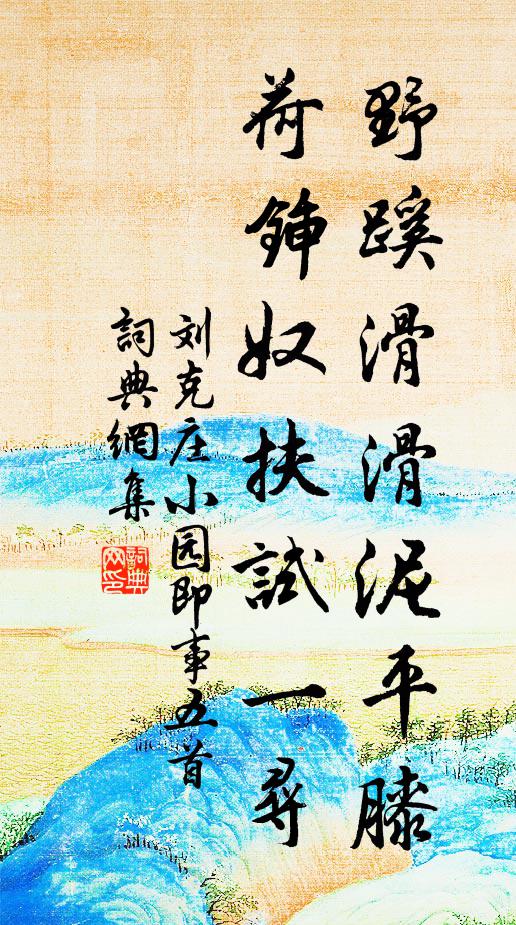 野蹊滑滑泥平膝
荷锸奴扶試一尋
刘克庄小园即事五首
詞典網集
詞典
网印